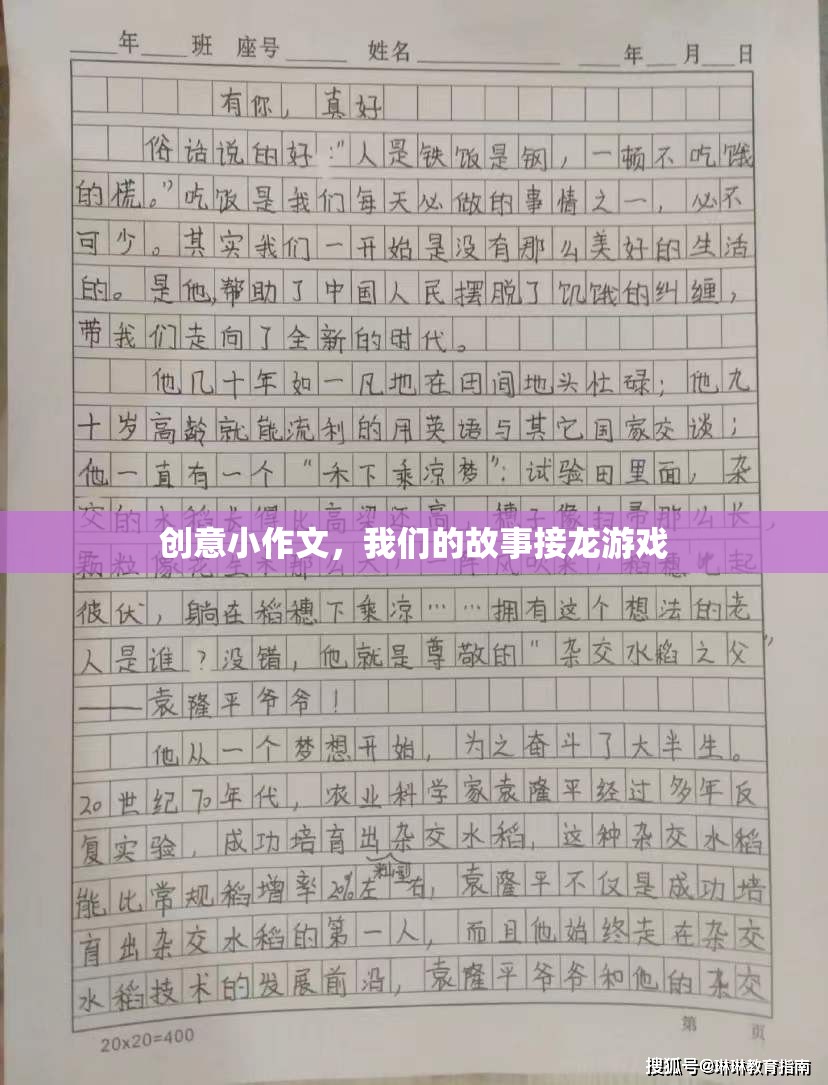 年 班 座号 姓名 年 月 日
有你，真好
俗话说的好："人是铁饭是钢，一顿不吃饿
的慌。"吃饭是我们每天必做的事情之一，必不
可少。其实我们一开始是没有那么美好的生活
的。是他，帮助了中国人民摆脱了饥饿的纠缠，
带我们走向了全新的时代。
他几十年如一凡地在田间地头忙碌；他九
十岁高龄就能流利的用英语与其它国家交谈；
他一直有一个"禾下乘凉梦"：试验田里面，杂
交的水稻长得比高粱还高，穗子像扫帚那么长，
创意小作文，我们的故事接龙游戏
颗粒像花生米那么大，一阵风吹来，稻穗此起
彼伏，躺在稻穗下乘凉……拥有这个想法的老
人是谁？没错，他就是尊敬的"杂交水稻之父"
——袁隆平爷爷！
他从一个梦想开始，为之奋斗了大半生。
20世纪70年代，农业科学家袁隆平经过多年反
复实验，成功培育出杂交水稻，这种杂交水稻
籼型
能比常规稻增率20%左右，袁隆平不仅是成功培
育出杂交水稻的第一人，而且他始终走在杂交
水稻技术的发展前沿，袁隆平爷爷和他的杂交
20x20=400
第 页
搜狐号@琳琳教育指南